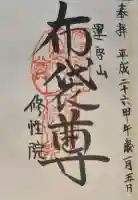 奉拝 平成二十六甲午歳一月五日
運啓山
布袋尊
修性院